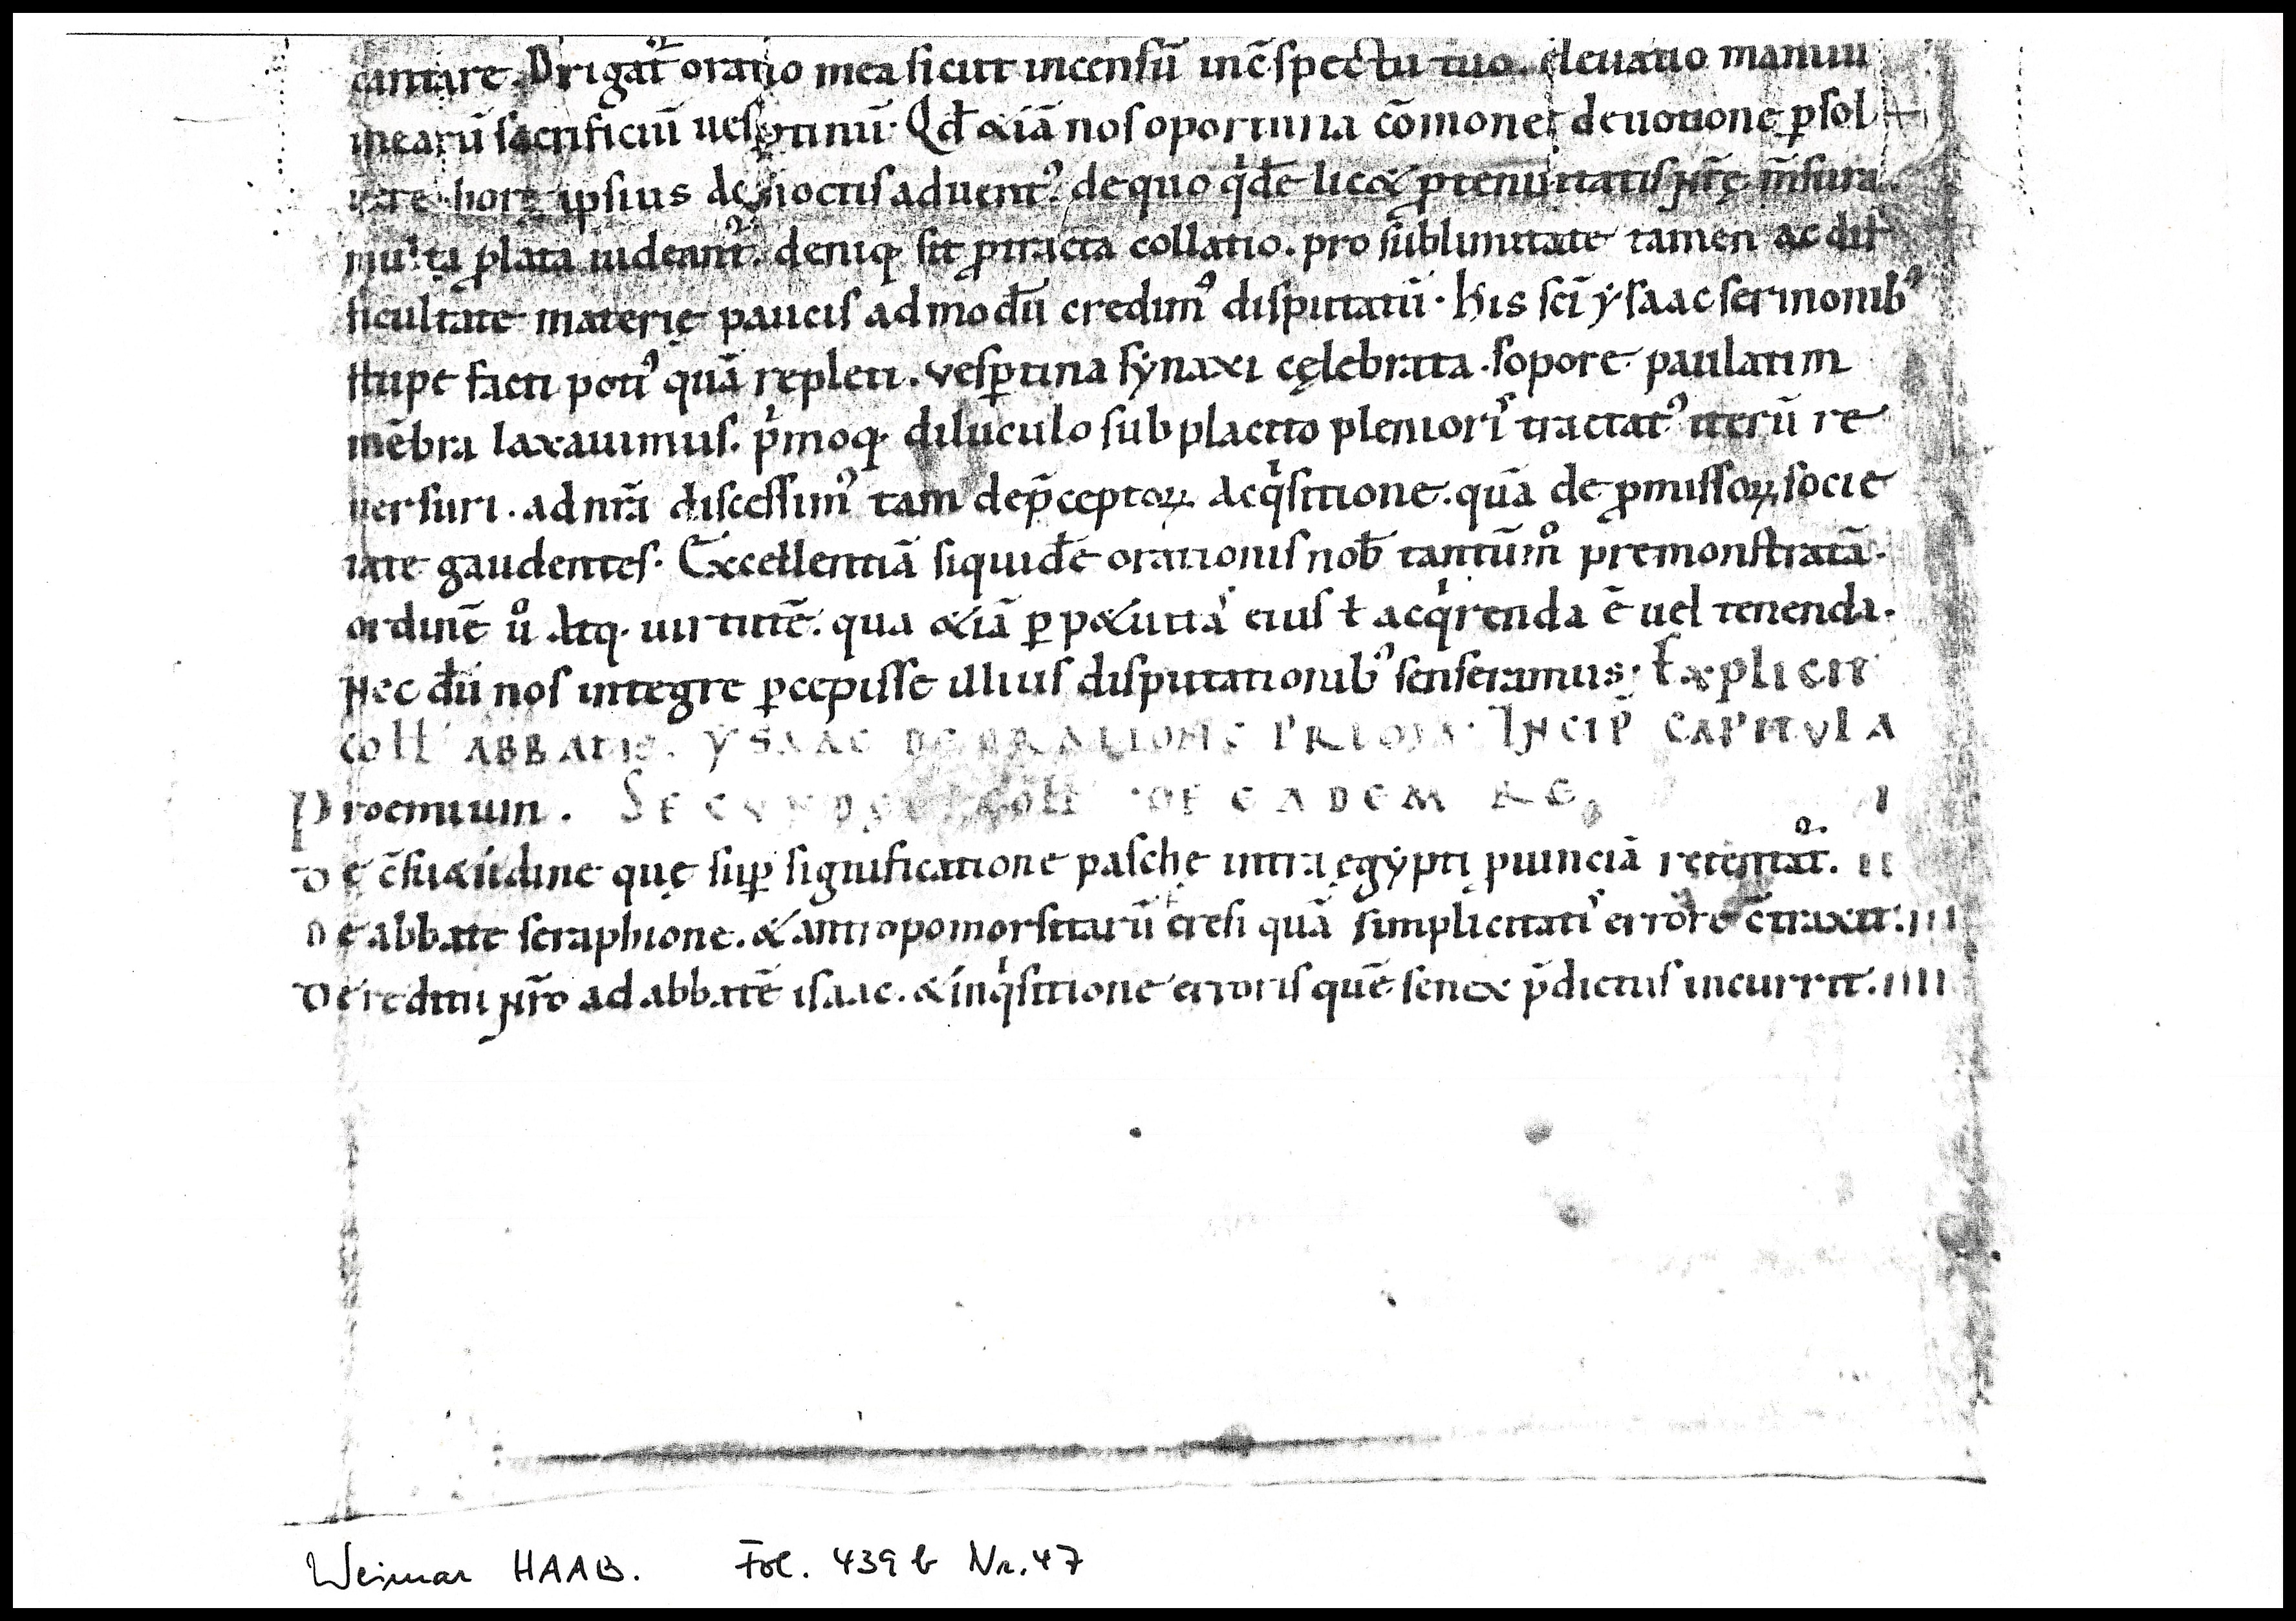 cantare. Dirigat᷑ oratio mea sicut incensū inc̄spectu tuo. eleuatio manuū
mearū sacrificiū uesꝑtinū. Qđ &iā nos oportuna cōmonet deuotione ꝑsol
uere horę ipsius de noctis aduentꝰ. de quo qͥdē lic& ꝓ tenuitatis nr̄ę m̄sura.
multa ꝓlata uideant᷑. deniq; sit ꝓtracta collatio. pro sublimitate tamen ac dif
ficultate materię paucis ad modū credimꝰ disputatū. His sc̄i ẏsaac sermonibꝰ
stupe facti potiꝰ quā repleti. vesꝑtina sẏnaxi cęlebrata. sopore paulatim
mēbra laxauimus. pͥmoq; diluculo sub placito pleniorͥs tractatꝰ iterū re
uersuri. ad nr̄a discessimꝰ tam de p̄ceptoꝝ acqͥsitione. quā de ꝓmissoꝝ socie
tate gaudentes. Excellentiā siquidē orationis nob̄ tantūmͦ premonstratā.
ordinē uͦ atq; uirtutē. qua &iā ꝑp&uitaˢ eius ł acqͥrenda ē uel tenenda.
Nec dū nos integre ꝑcepisse illius disputationibꝰ senseramus. Explicit
coll' ABBATIS. YSAAC DE ORATIONE PRIOR. INCIP̄ CAPITVLA
Proemium. SECVNDE COLL' DE EADEM RE. I
De c̄su&udine quę suꝑ significatione paschę intra ęgẏpti ꝓuinciā retentat᷑. II
De abbate seraphione. & antropomorfitarū eresi quā simplicitatiˢ errore c̄traxit. III
De reditu nr̄o ad abbatē isaac. & inqͥsitione erroris quē senex p̄dictus incurrit. IIII
Weimar HAAB. Fol. 439 b Nr. 47